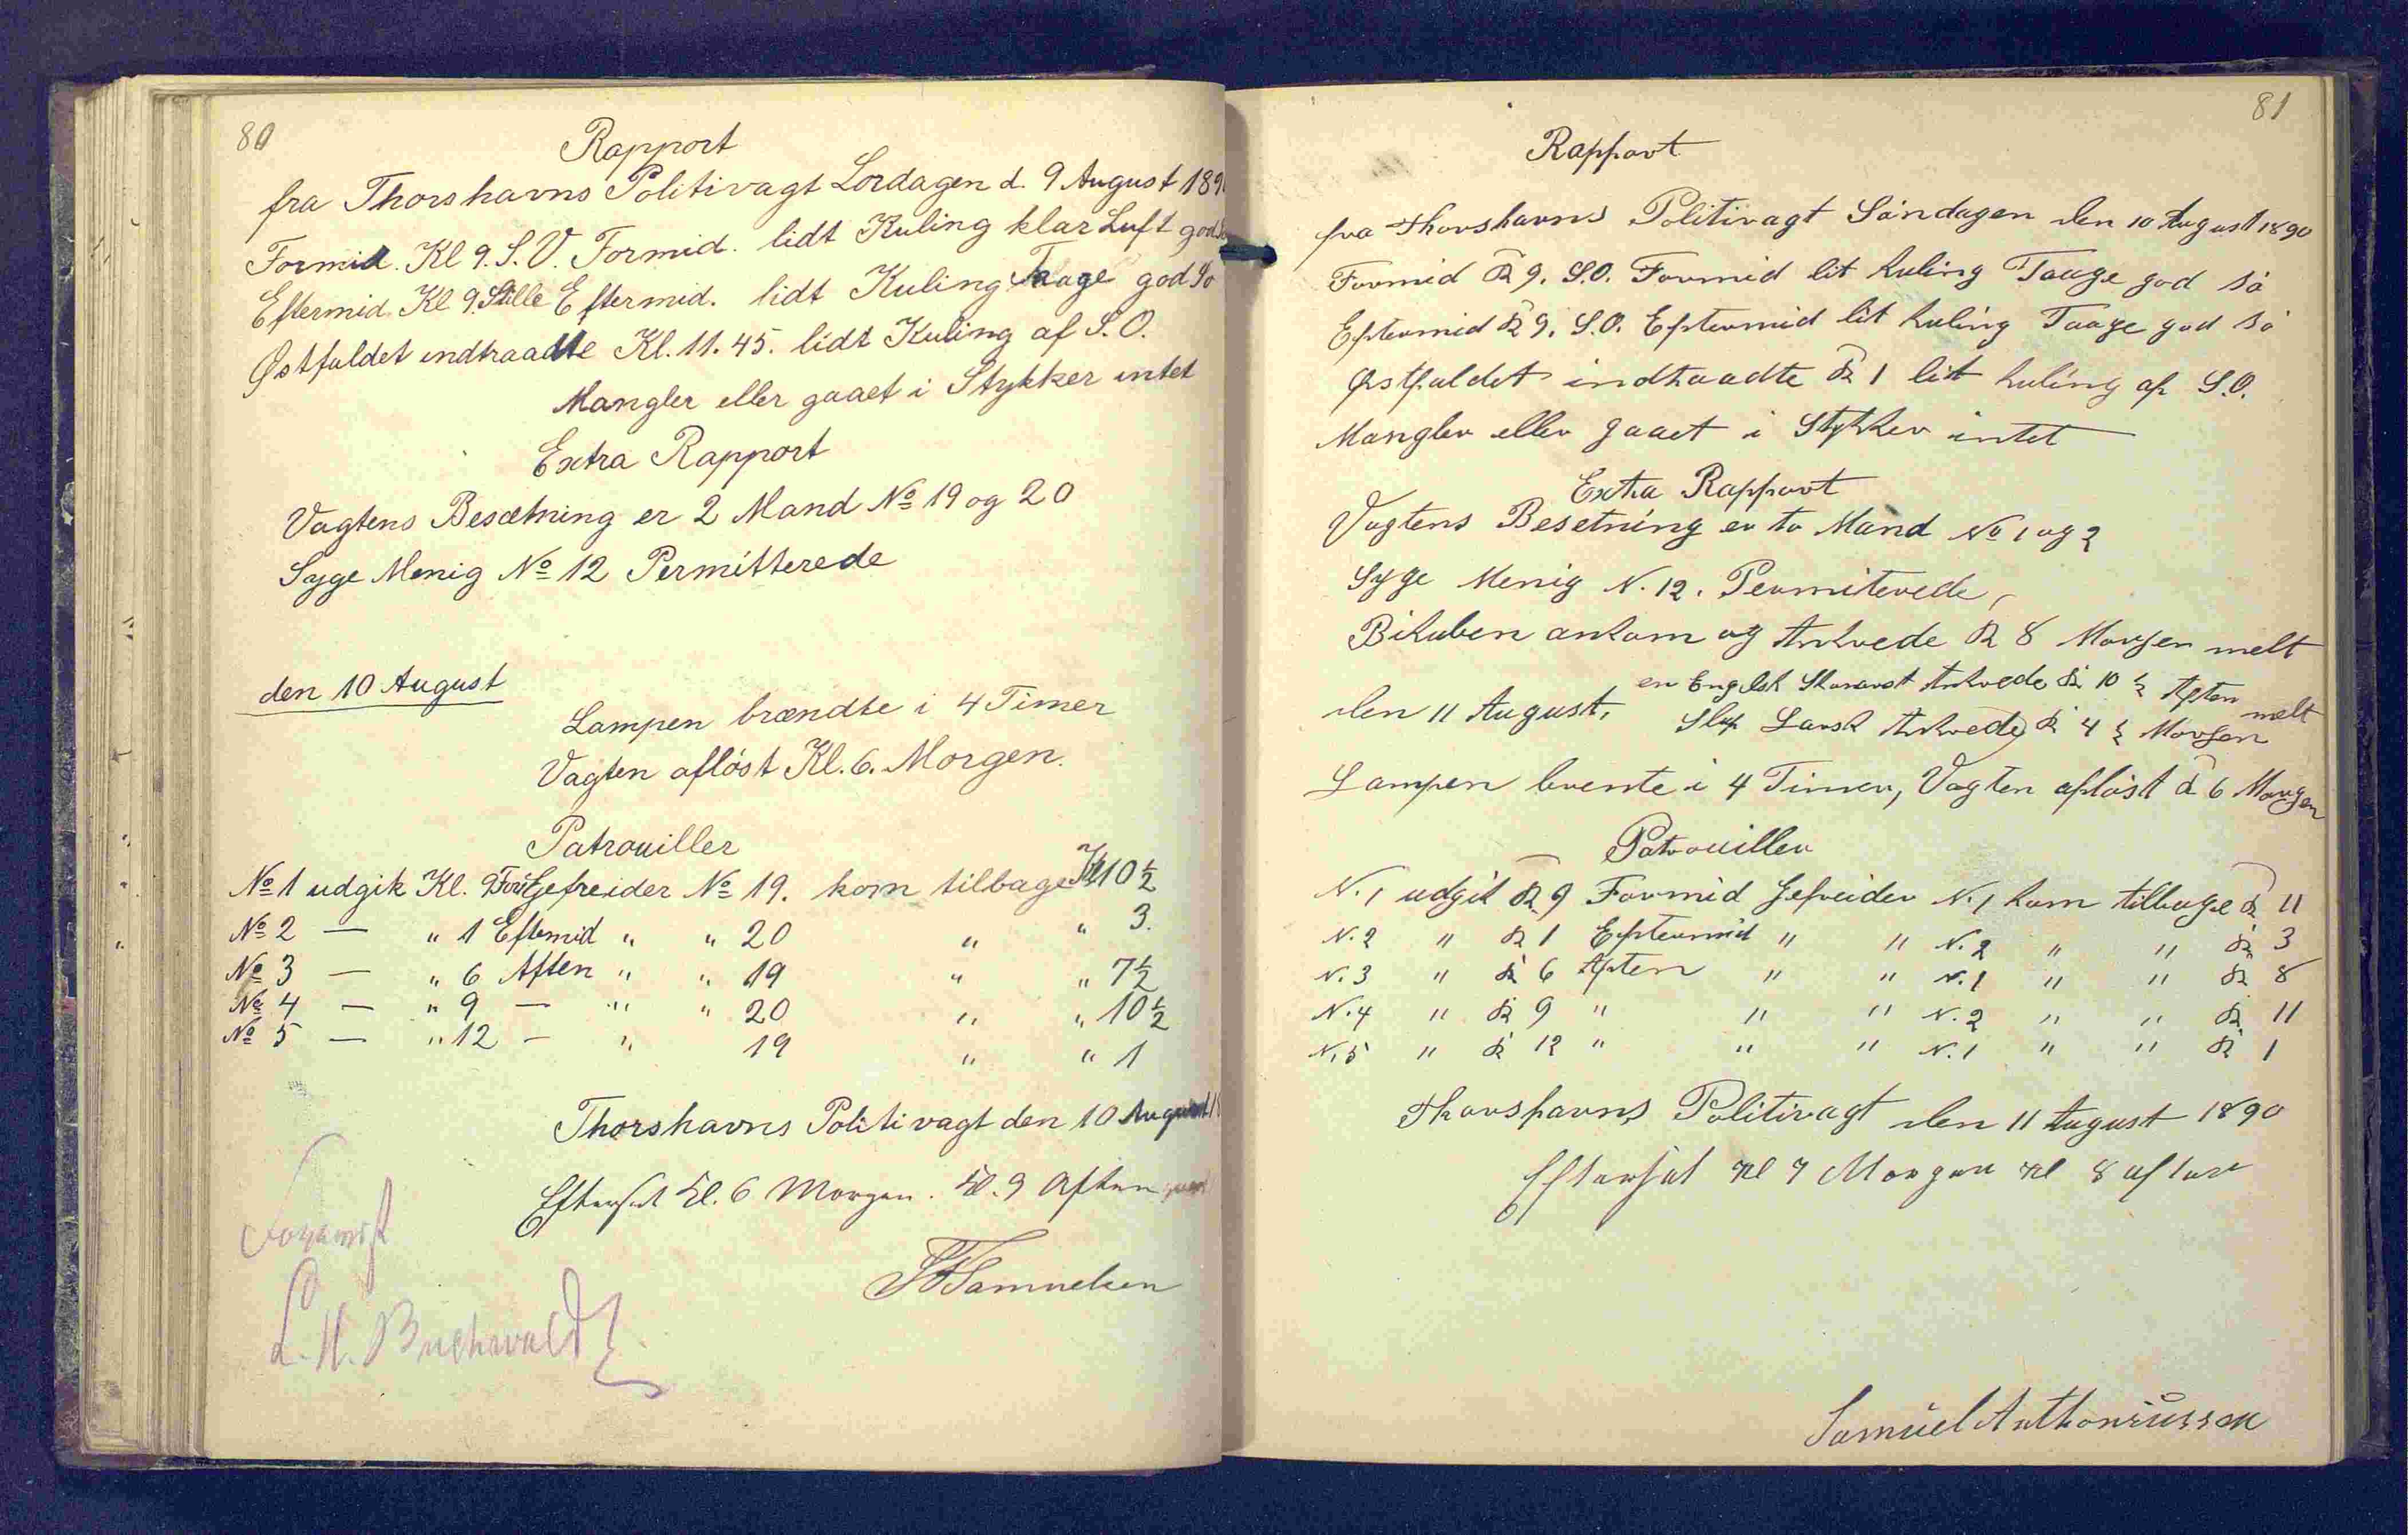 80
Rapport
fra Thorshavns Politivagt Lordagen d. 9 August 189
Formid. Kl 9. S.V. Formid. lidt Kuling klar Luft god So
Eftermid. Kl 9. Stille Eftermid. lidt Kuling Taage god So
Østfaldet indtraadte Kl. 11.45. lidt Kuling af S.O.
Mangler eller gaaet i Stykker intet
Extra Rapport
Vagtens Besætning er 2 Mand No 19 og 20
Syge Menig No 12 Permitterede
den 10 August
Lampen brændte i 4 Timer
Vagten afløst Kl. 6. Morgen.
Patrouiller
No 1 udgik Kl. 9 For Gefreider No 19. kom tilbage Kl 10 ½
No 2 — " 1 Eftemid " " 20 " " 3.
No 3 — " 6 Aften " " 19 " " 7½
No 4 — " 9 — " " 20 " " 10½
No 5 — " 12 — " 19 " " 1
Thorshavns Politivagt den 10 August 1
Efterset Kl. 6 Morgen. Kl. 9 Aften
Samuelsen
L. H. Buchwaldt
81
Rapport
fra Thorshavns Politivagt Söndagen den 10 August 1890
Formid Kl 9. S.O. Formid lit kuling Taage god Sö
Eftermid Kl 9. S.O. Eftermid lit kuling Taage god Sö
Østfaldet indtraadte Kl 1 lit kuling af S.O.
Mangler eller gaaet i Stykker intet —
Extra Rapport
Vagtens Besetning er to Mand No 1 og 2
Syge Menig N. 12. Permiterede,
Bikuben ankom og Ankrede Kl 8 Morgen melt
en Engelsk Skonnert Ankrede Kl 10 ½ Aften melt
den 11 August. Slup Dansk Ankrede Kl 4 ½ Morgen
Lampen brente i 4 Timer, Vagten afløst Kl 6 Morgen
Patrouiller
N. 1 udgik Kl 9 Formid Gefreider N. 1 kom tilbage Kl 11
N. 2 " Kl 1 Eftermid " " N. 2 " " Kl 3
N. 3 " Kl 6 Aften " " N. 1 " " Kl 8
N. 4 " Kl 9 " " " N. 2 " " Kl 11
N. 5 " Kl 12 " " " N. 1 " " Kl 1
Thorshavns Politivagt den 11 August 1890
Efterset Kl 7 Morgen Kl 8 aften
Samuel Anthoniussen